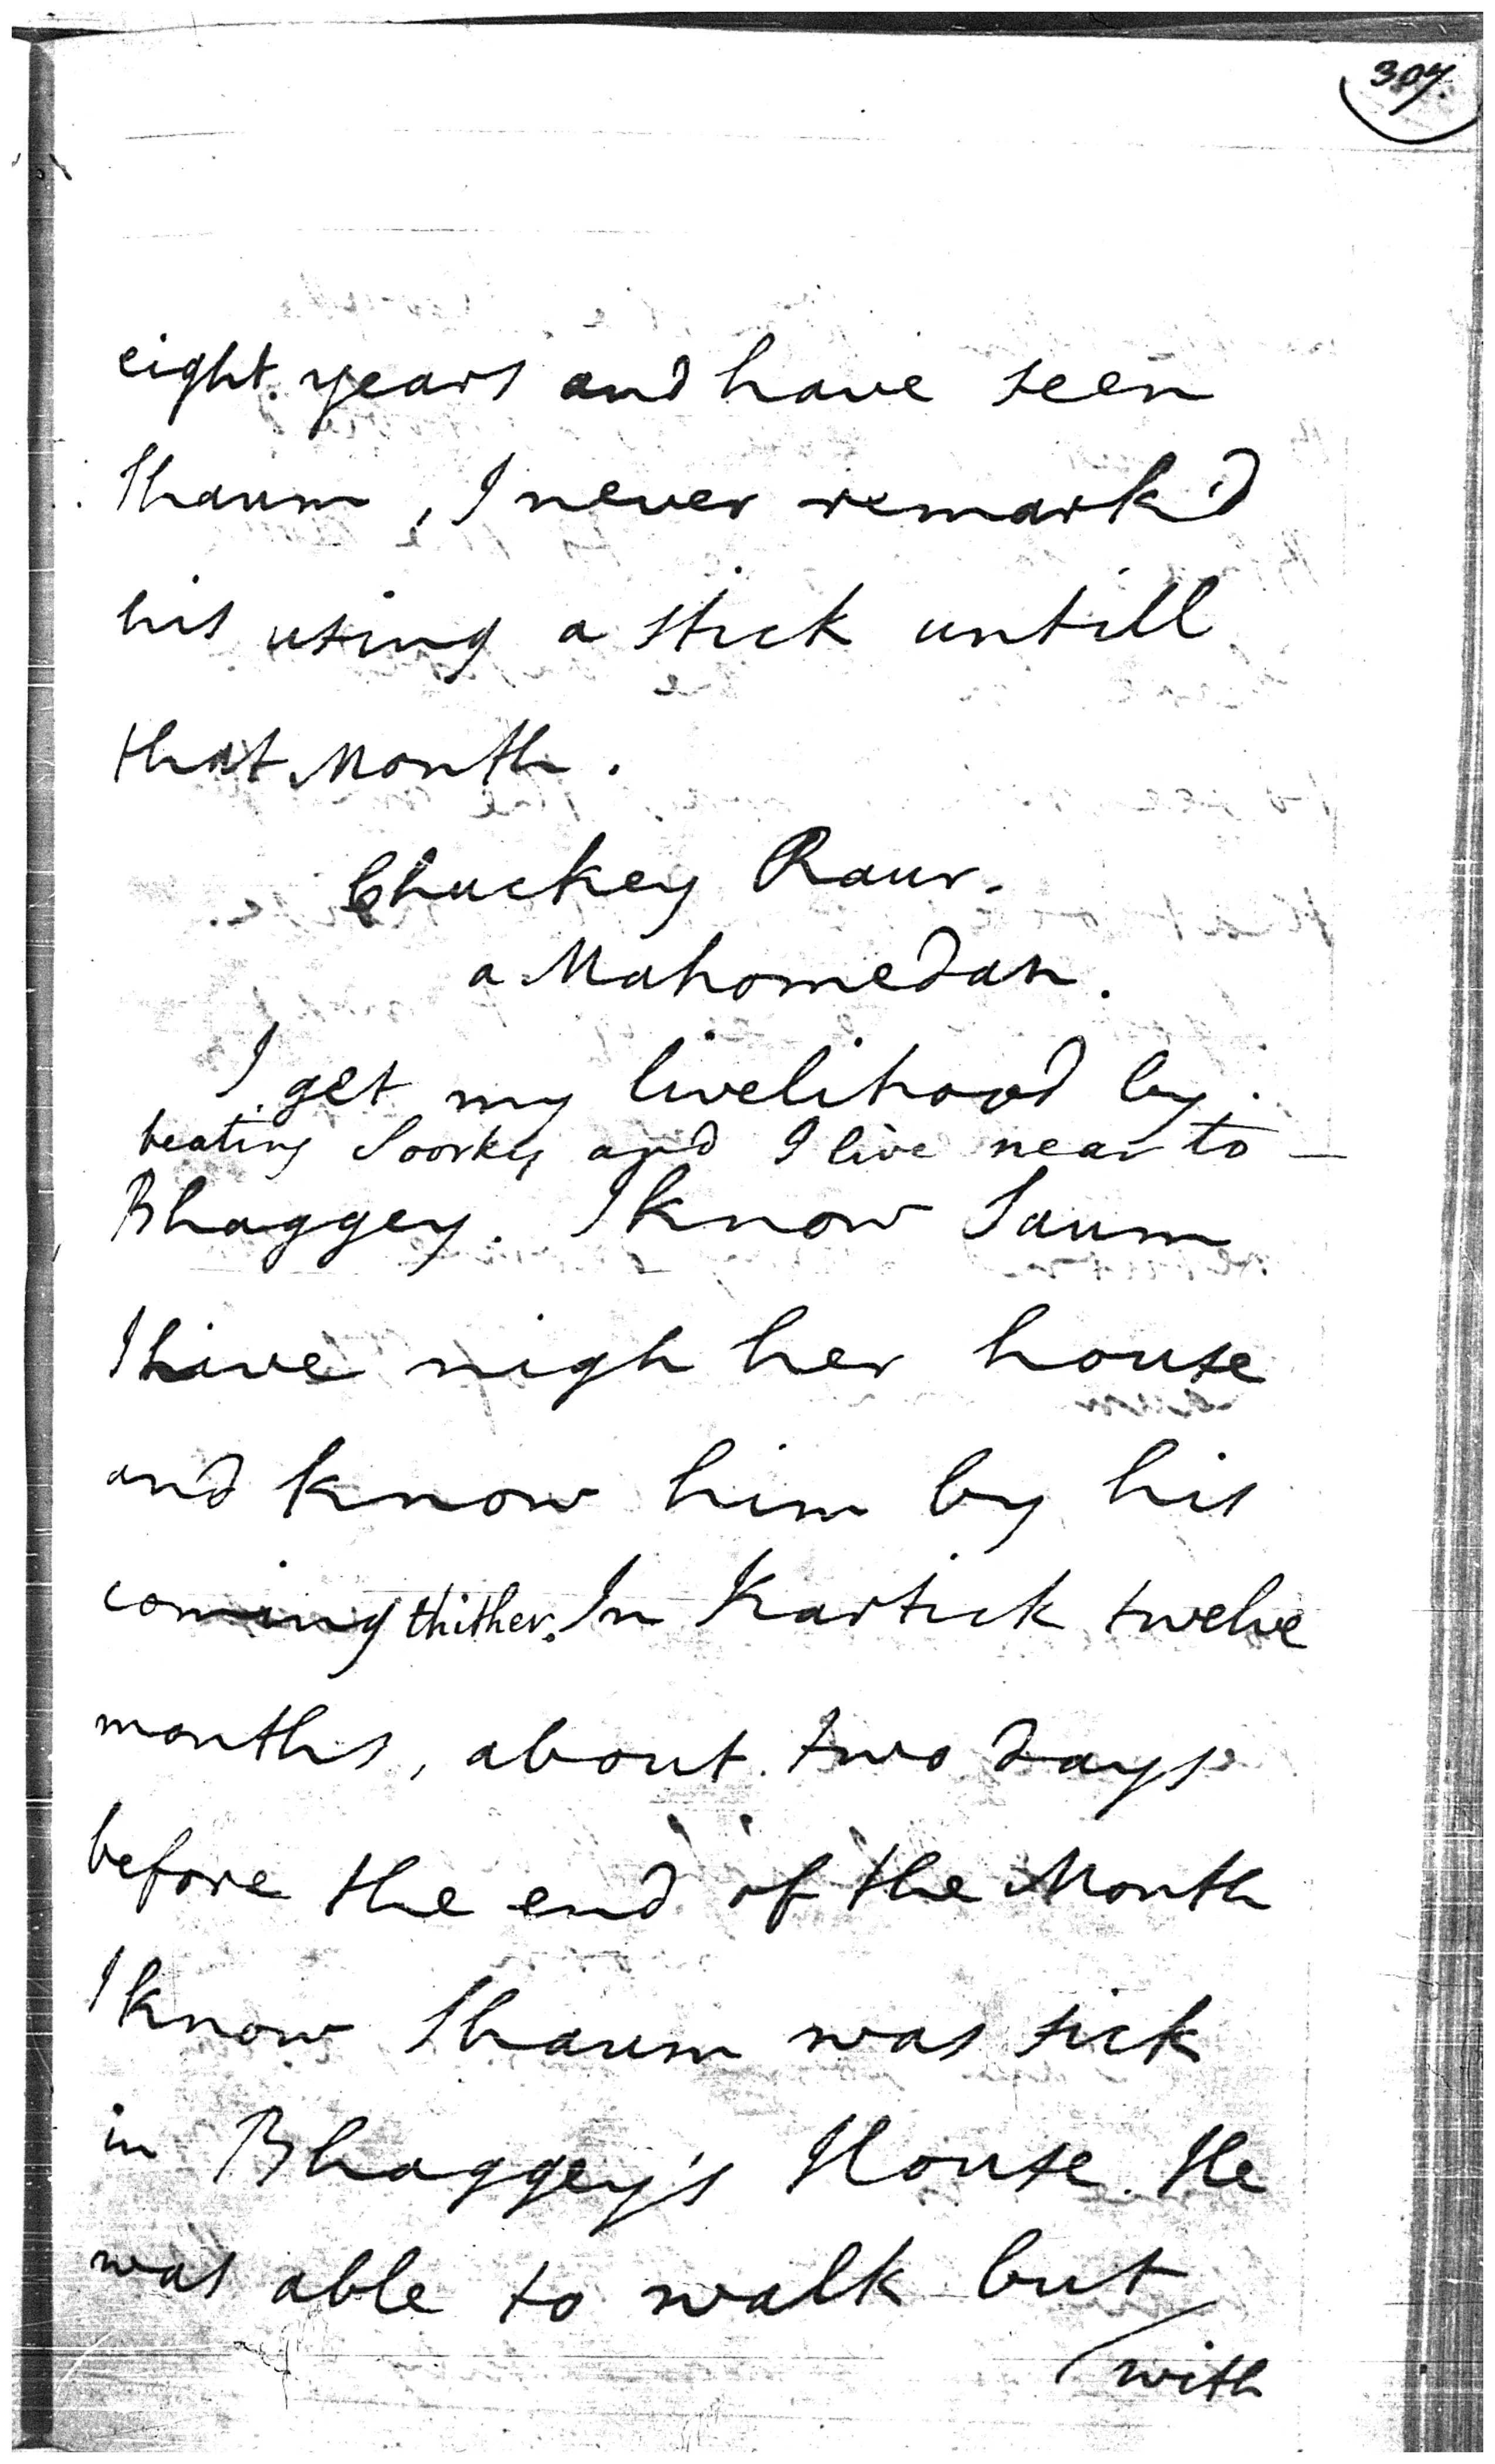 307.
eight years and have seen
Shaum, I never remark'd
his using a stick untill
that Month.
Chuckey Raur.
a Mahomedan.
I get my livelihood by
beating Soorkey and I live near to —
Bhaggey. I know Saum
I live nigh her house
and know him by his
coming thither. In Kartick twelve
months, about two days
before the end of the Month
I know Shaum was sick
in Bhaggey's House. He
was able to walk but
with